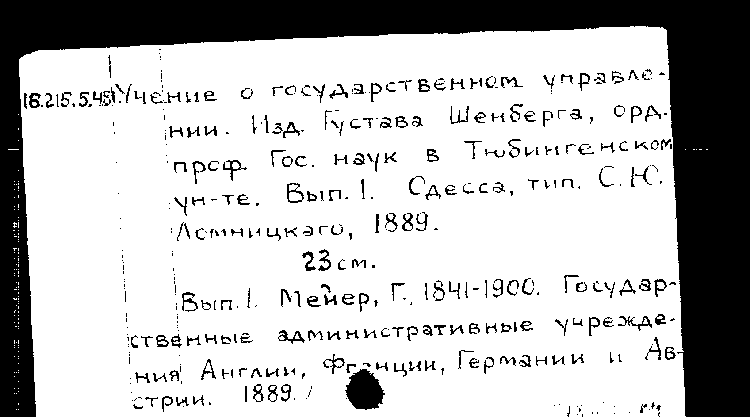 18.215.5.48 Учение о государственном управле-
нии. Изд. Густава Шенберга, орд.
проф. Гос. наук в Тюбингенском
ун-те. Вып. 1. Одесса, тип. С.Ю.
Ломницкаго, 1889.
23 см.
Вып. 1. Мейер, Г., 1841-1900. Государ-
ственные административные учрежде-
ния Англии, Франции, Германии и Ав-
стрии. 1889.